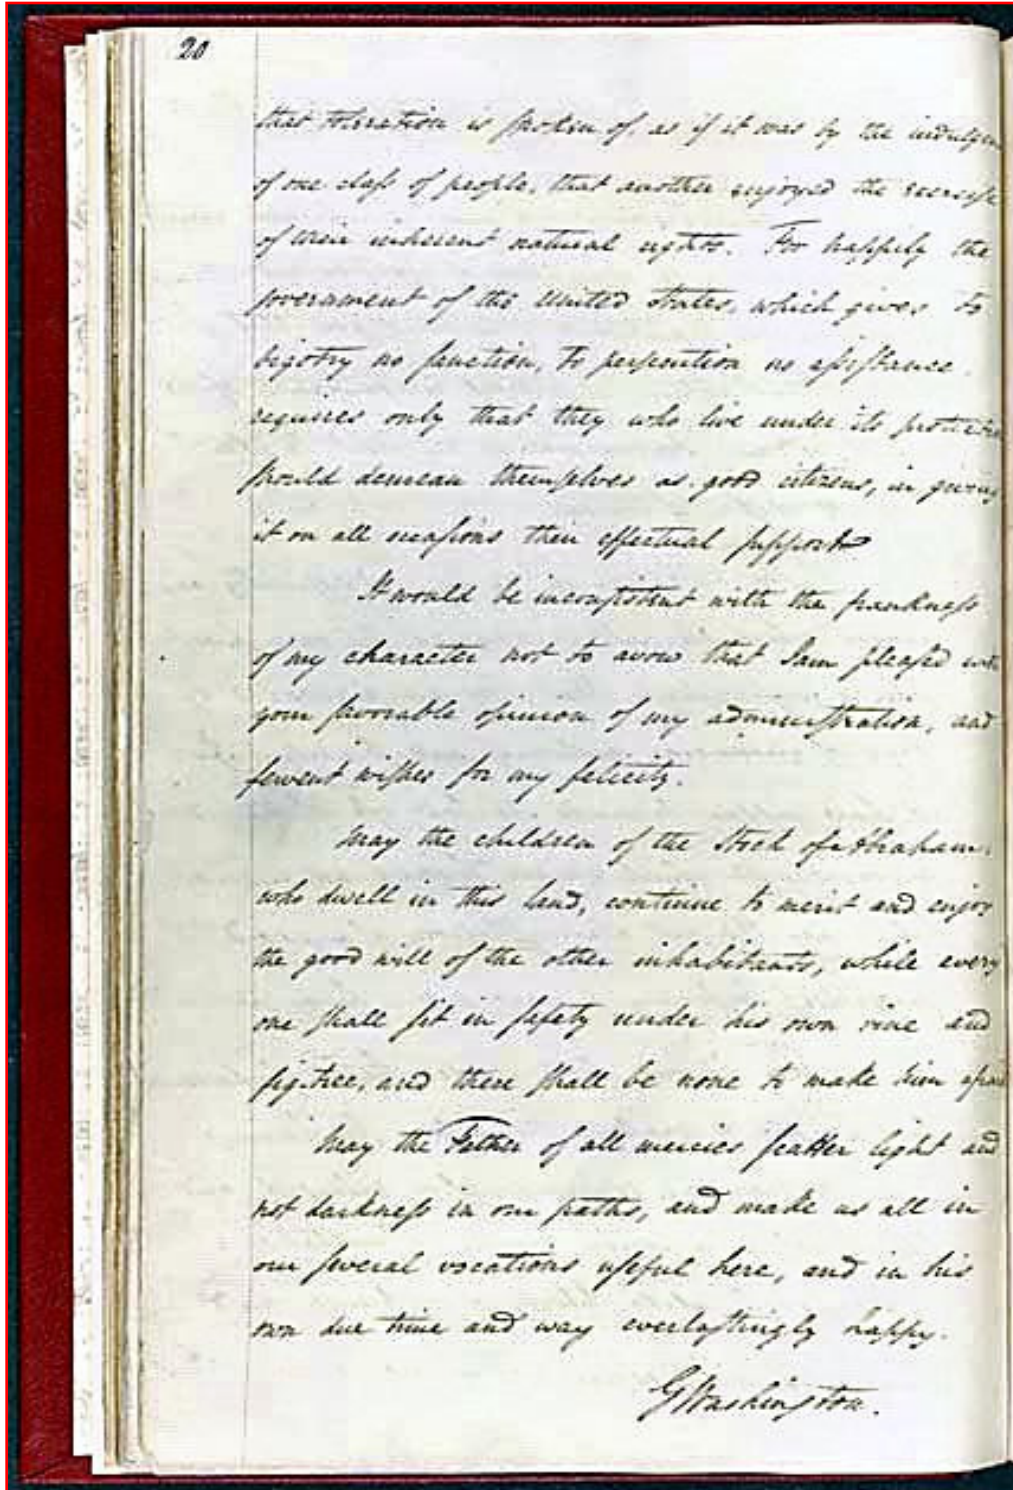 20
that toleration is spoken of, as if it was by the indulgen
of one class of people, that another enjoyed the exercise
of their inherent natural rights. For happily the
government of the United States, which gives to
bigotry no sanction, to persecution no assistance
requires only that they who live under its protectio
should demean themselves as good citizens, in giving
it on all occasions their effectual support
It would be inconsistent with the frankness
of my character not to avow that I am pleased with
your favorable opinion of my administration, and
fervent wishes for my felicity.
May the children of the Stock of Abraham,
who dwell in this land, continue to merit and enjoy
the good will of the other inhabitants, while every
one shall sit in safety under his own vine and
figtree, and there shall be none to make him afrai
May the Father of all mercies scatter light and
not darkness in our paths, and make us all in
our several vocations useful here, and in his
own due time and way everlastingly happy.
GWashington.